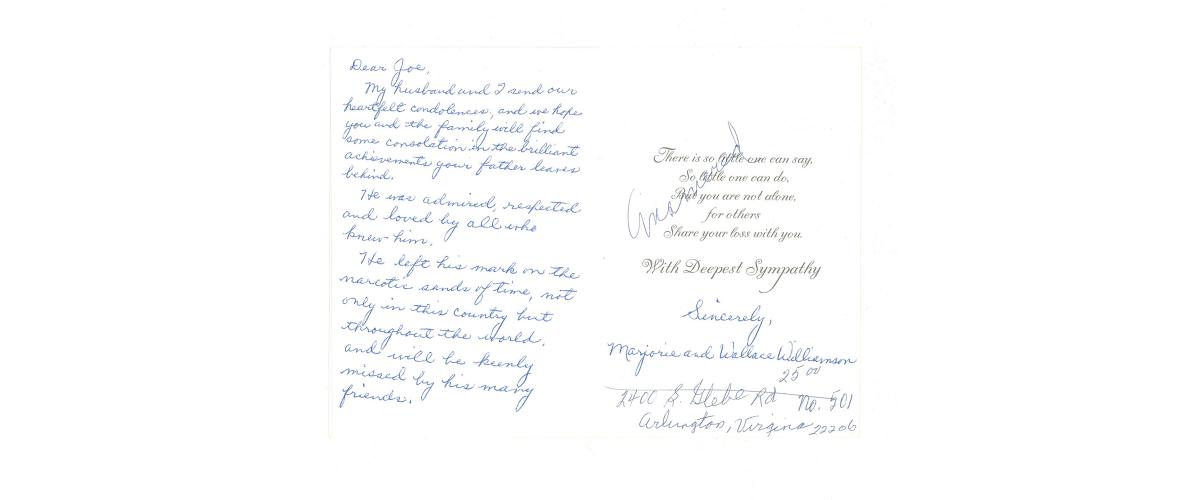 Dear Joe,
My husband and I send our
heartfelt condolences, and we hope
you and the family will find
some consolation in the brilliant
achievements your father leaves
behind.
He was admired, respected
and loved by all who
knew him.
He left his mark on the
narcotic sands of time, not
only in this country but
throughout the world,
and will be keenly
missed by his many
friends.
Answered
There is so little one can say,
So little one can do,
But you are not alone,
for others
Share your loss with you.
With Deepest Sympathy
Sincerely,
Marjorie and Wallace Williamson
25 00
2400 S. Glebe Rd No. 501
Arlington, Virginia 22206